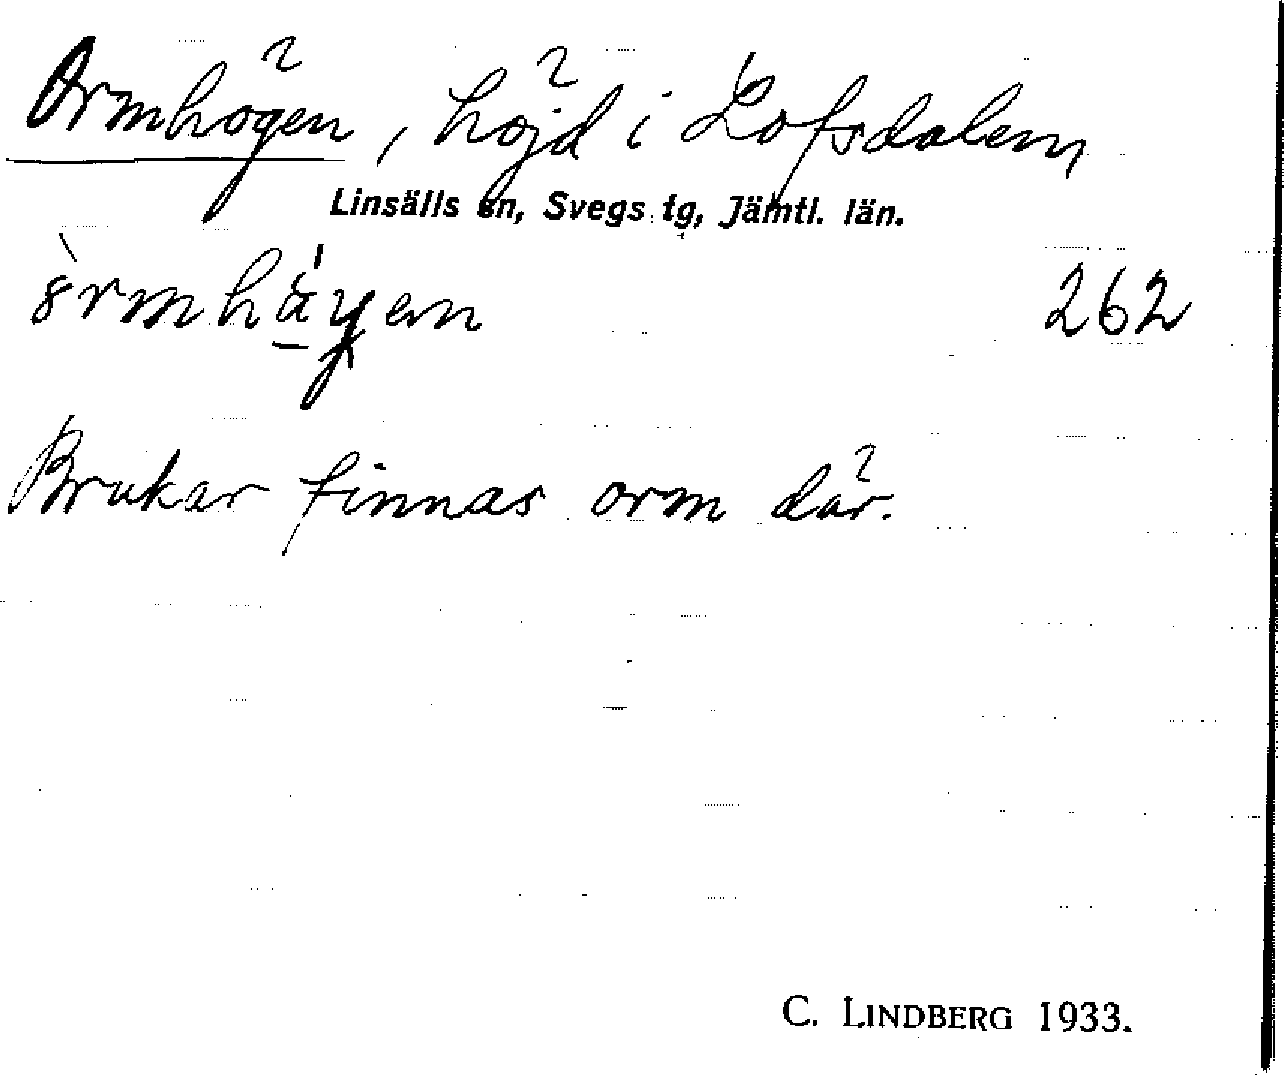 Ormhögen, höjd i Lofsdalen
Linsälls sn, Svegs tg, Jämtl. län.
262
Brukar finnas orm där.
C. LINDBERG 1933.